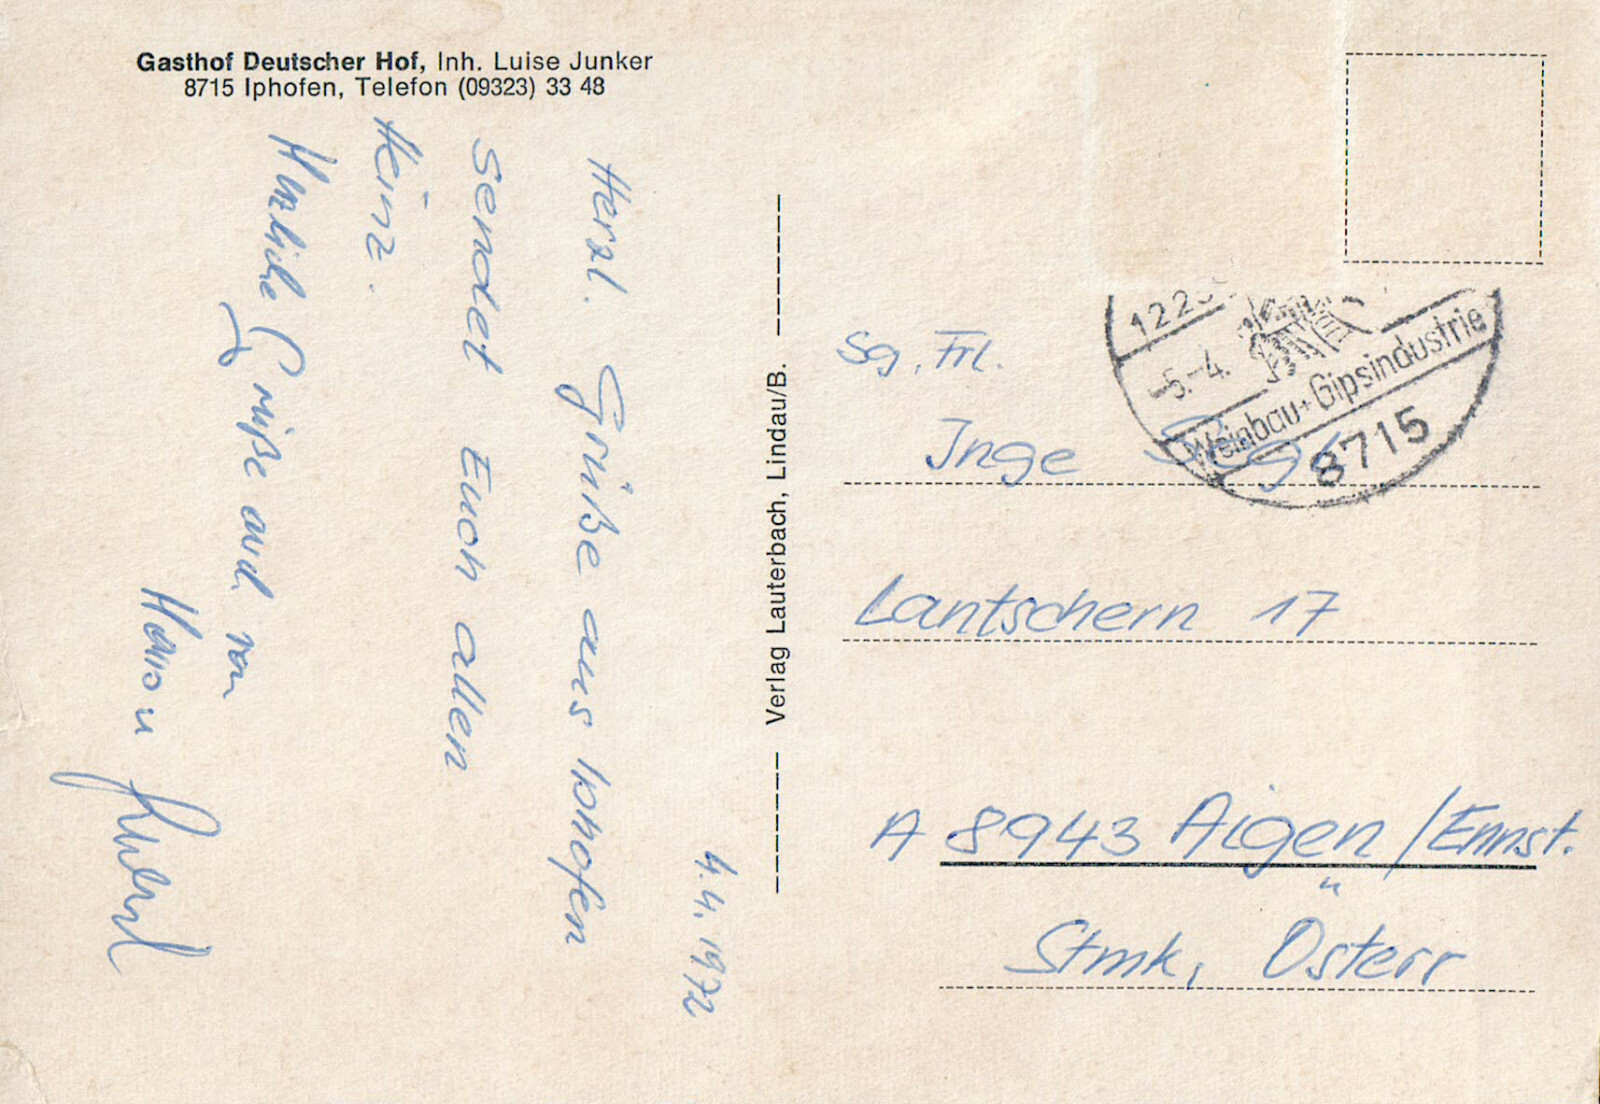 Gasthof Deutscher Hof, Inh. Luise Junker
8715 Iphofen, Telefon (09323) 33 48
4.4.1972
Herzl. Grüße aus Iphofen
sendet Euch allen
Heinz.
Herzliche Grüße auch von
Verlag Lauterbach, Lindau/B.
-5.-4.
Weinbau+Gipsindustrie
8715
Sg. Frl.
Inge
Lantschern 17
A 8943 Aigen /Ennst.
Stmk, Österr